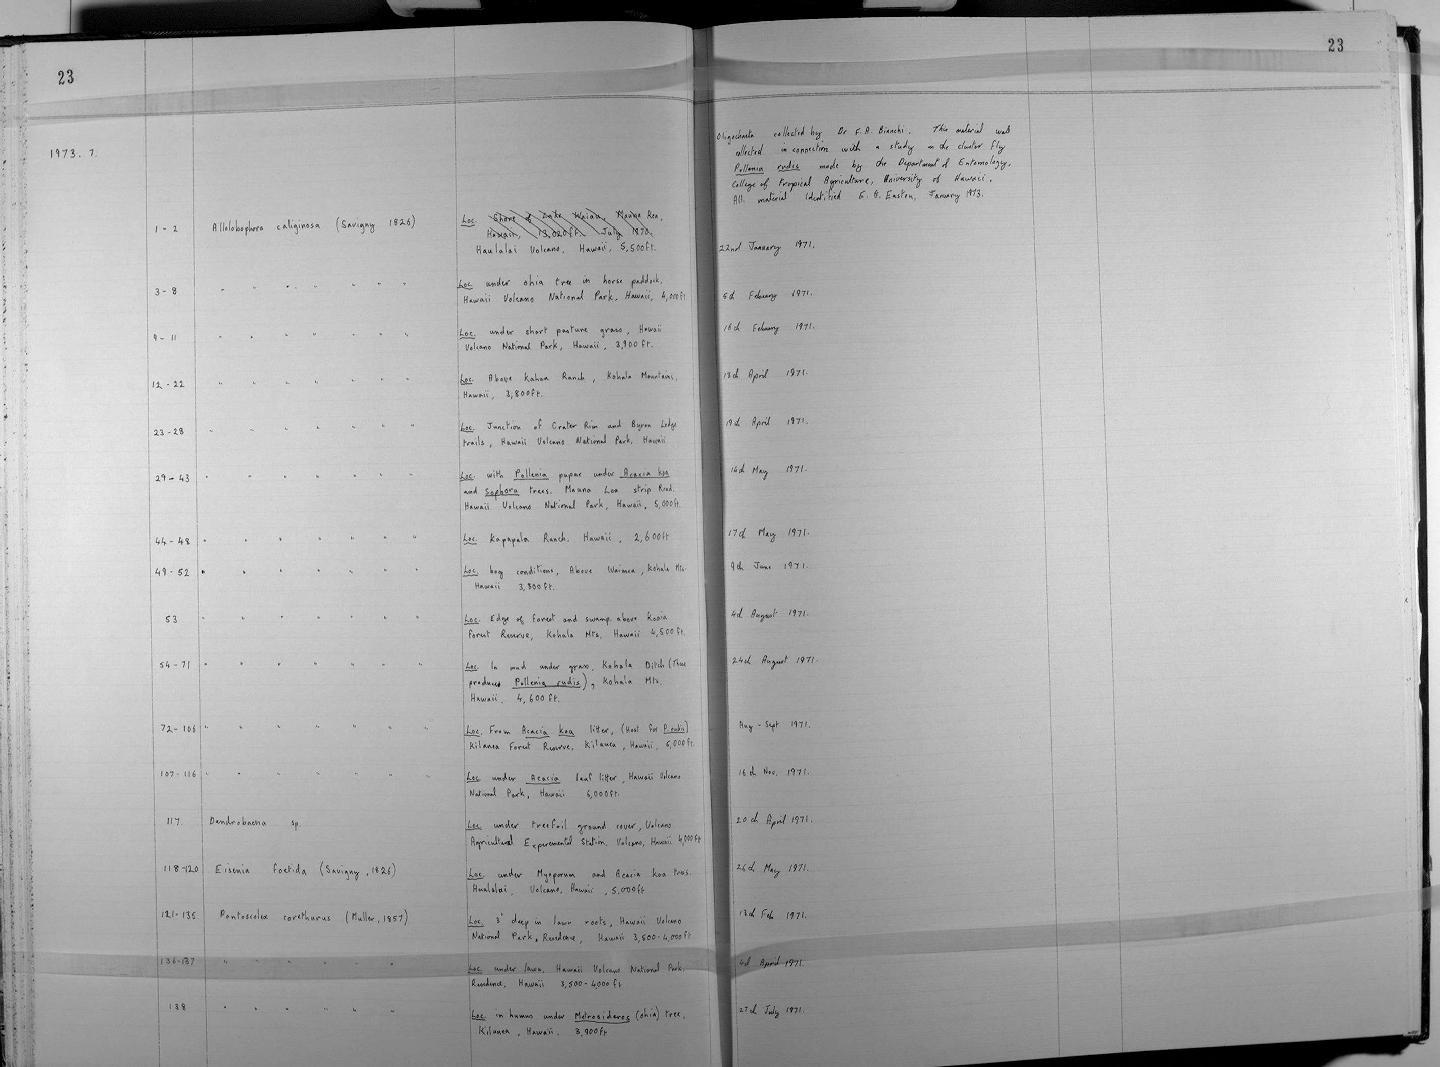 23
23
Oligochaeta collected by Dr F. A. Bianchi. This material was
collected in connection with a study on the cluster fly
Pollenia rudis made by the Department of Entomology,
College of Tropical Agriculture, University of Hawaii.
All material Identified E. G. Easton, January 1973.
1973. 7.
1 - 2 Allolobophora caliginosa (Savigny 1826) Loc. Shore of Lake Waiau, Mauna Kea,
Hawaii, 13,020ft. July 1970.
Haulalai Volcano, Hawaii, 5,500ft. 22nd January 1971.
3 - 8 " " " " " " " Loc. under ohia tree in horse paddock,
Hawaii Volcano National Park, Hawaii, 4,000ft 5th February 1971.
9 - 11 " " " " " " " Loc. under short pasture grass, Hawaii
Volcano National Park, Hawaii, 3,900ft. 16th February 1971.
12 - 22 " " " " " " " Loc. Above Kahua Ranch, Kohala Mountains,
Hawaii, 3,800ft. 13th April 1971.
23 - 28 " " " " " " " Loc. Junction of Crater Rim and Byron Ledge
trails, Hawaii Volcano National Park, Hawaii 19th April 1971.
29 - 43 " " " " " " " Loc. with Pollenia pupae under Acacia koa
and Sophora trees. Mauna Loa strip Road.
Hawaii Volcano National Park, Hawaii, 5,000ft. 14th May 1971.
44 - 48 " " " " " " " Loc. Kapapala Ranch. Hawaii, 2,600ft 17th May 1971.
49 - 52 " " " " " " " Loc. bog conditions, Above Waimea, Kohala Mts.
Hawaii 3,800ft. 9th June 1971.
53 " " " " " " " Loc. Edge of forest and swamp above
Forest Reserve, Kohala Mts, Hawaii 4,500ft. 4th August 1971.
54 - 71 " " " " " " " Loc. In mud under grass, Kohala Ditch (
produces Pollenia rudis), Kohala Mts.
Hawaii. 4,600ft. 24th August 1971.
72 - 106 " " " " " " " Loc. From Acacia koa litter, (Host for P. rudis)
Kilauea Forest Reserve, Kilauea, Hawaii, 5,000ft. Aug - Sept 1971.
107 - 116 " " " " " " " Loc under Acacia leaf litter, Hawaii Volcano
National Park, Hawaii 5,000ft. 16th Nov. 1971.
117. Dendrobaena sp. Loc under treefoil ground cover, Volcano
Agricultural Experemental Station. Volcano, Hawaii 4,000ft 20th April 1971.
118-120 Eisenia foetida (Savigny, 1826) Loc. under Myoporum and Acacia koa trees.
Hualalai, Volcano, Hawaii, 5,000ft 26th May 1971.
121-135 Pontoscolex corethurus (Muller, 1857) Loc. 3" deep in lawn roots, Hawaii Volcano
National Park, Residence, Hawaii 3,500-4,000ft 13th Feb 1971.
136-137 " " " " " Loc under lawn, Hawaii Volcano National Park,
Residence, Hawaii 3,500-4,000ft 4th April 1971.
138 " " " " " Loc. in humus under Metrosideros (ohia) tree,
Kilauea, Hawaii. 3,900ft 27th July 1971.